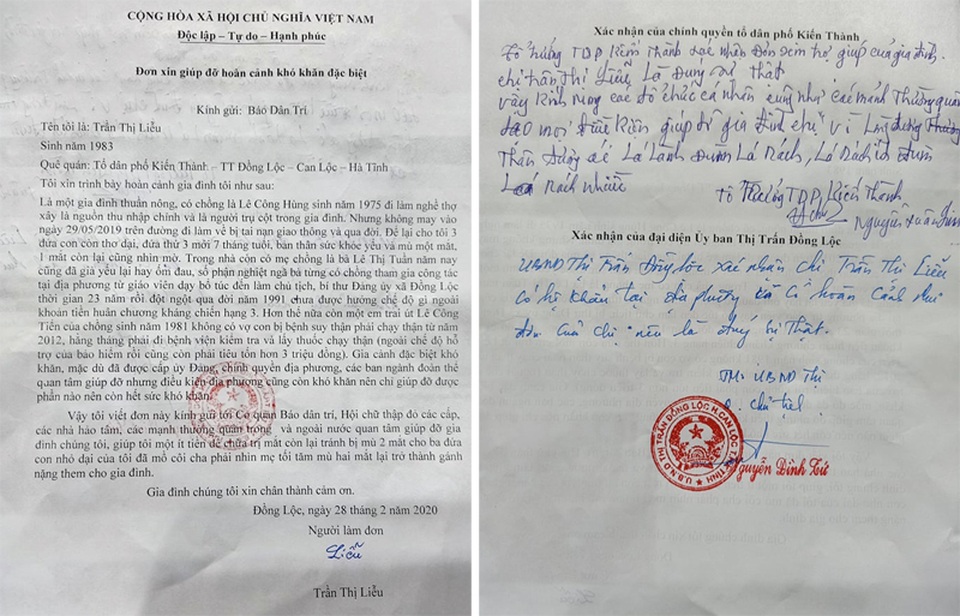 CỘNG HÒA XÃ HỘI CHỦ NGHĨA VIỆT NAM
Độc lập – Tự do – Hạnh phúc
Đơn xin giúp đỡ hoàn cảnh khó khăn đặc biệt
Kính gửi: Báo Dân Trí
Tên tôi là: Trần Thị Liễu
Sinh năm 1983
Quê quán: Tổ dân phố Kiến Thành – TT Đồng Lộc – Can Lộc – Hà Tĩnh
Tôi xin trình bày hoàn cảnh gia đình tôi như sau:
Là một gia đình thuần nông, có chồng là Lê Công Hùng sinh năm 1975 đi làm nghề thợ
xây là nguồn thu nhập chính và là người trụ cột trong gia đình. Nhưng không may vào
ngày 29/05/2019 trên đường đi làm về bị tai nạn giao thông và qua đời. Để lại cho tôi 3
đưa con còn thơ dại, đứa thứ 3 mới 7 tháng tuổi, bản thân sức khỏe yếu và mù một mắt,
1 mắt còn lại cũng nhìn mờ. Trong nhà còn có mẹ chồng là bà Lê Thị Tuần năm nay
cũng đã già yếu lại hay ốm đau, số phận nghiệt ngã bà từng có chồng tham gia công tác
tại địa phương từ giáo viên dạy bổ túc đến làm chủ tịch, bí thư Đảng ủy xã Đồng Lộc
thời gian 23 năm rồi đột ngột qua đời năm 1991 chưa được hưởng chế độ gì ngoài
khoản tiền huân chương kháng chiến hạng 3. Hơn thế nữa còn một em trai út Lê Công
Tiến của chồng sinh năm 1981 không có vợ con bị bệnh suy thận phải chạy thận từ năm
2012, hằng tháng phải đi bệnh viện kiểm tra và lấy thuốc chạy thận (ngoài chế độ hỗ
trợ của bảo hiểm rồi cũng còn phải tiêu tốn hơn 3 triệu đồng). Gia cảnh đặc biệt khó
khăn, mặc dù đã được cấp ủy Đảng, chính quyền địa phương, các ban ngành đoàn thể
quan tâm giúp đỡ nhưng điều kiện địa phương cũng còn khó khăn nên chỉ giúp đỡ được
phần nào nên còn hết sức khó khăn.
Vậy tôi viết đơn này kính gửi tới Cơ quan Báo dân trí, Hội chữ thập đỏ các cấp,
các nhà hảo tâm, các mạnh thường quân trong và ngoài nước quan tâm giúp đỡ gia
đình chúng tôi, giúp tôi một ít tiền để chữa trị mắt còn lại tránh bị mù 2 mắt cho ba đứa
con nhỏ dại của tôi đã mồ côi cha phải nhìn mẹ tối tăm mù hai mắt lại trở thành gánh
nặng thêm cho gia đình.
Gia đình chúng tôi xin chân thành cảm ơn.
Đồng Lộc, ngày 28 tháng 2 năm 2020
Người làm đơn
Liễu
Trần Thị Liễu
Xác nhận của chính quyền tổ dân phố Kiến Thành
Tổ trưởng TDP Kiến Thành xác nhận Đơn xem trợ giúp của gia đình
chị trần thị Liễu Là Đúng sự thật
vậy Kính mong các tổ chức cá nhân cũng như các mạnh Thường quân
tạo mọi điều Kiện giúp đỡ gia đình chị vì Lòng
Thần Lá Lành Đùm Lá Rách, Lá Rách ít đùm
Lá Rách nhiều
Tổ Trưởng TDP Kiến Thành
Nguyễn Xuân
Xác nhận của đại diện Ủy ban Thị Trấn Đồng Lộc
UBND Thị Trấn Đồng Lộc xác nhận chị Trần Thị Liễu
có hộ khẩu tại địa phương và có hoàn cảnh như
đơn của chị nêu là đúng sự thật.
TM: UBND Thị
chủ tịch
U.B.N.D THỊ TRẤN ĐỒNG LỘC H.CAN LỘC T.HÀ TĨNH
Nguyễn Đình Tứ